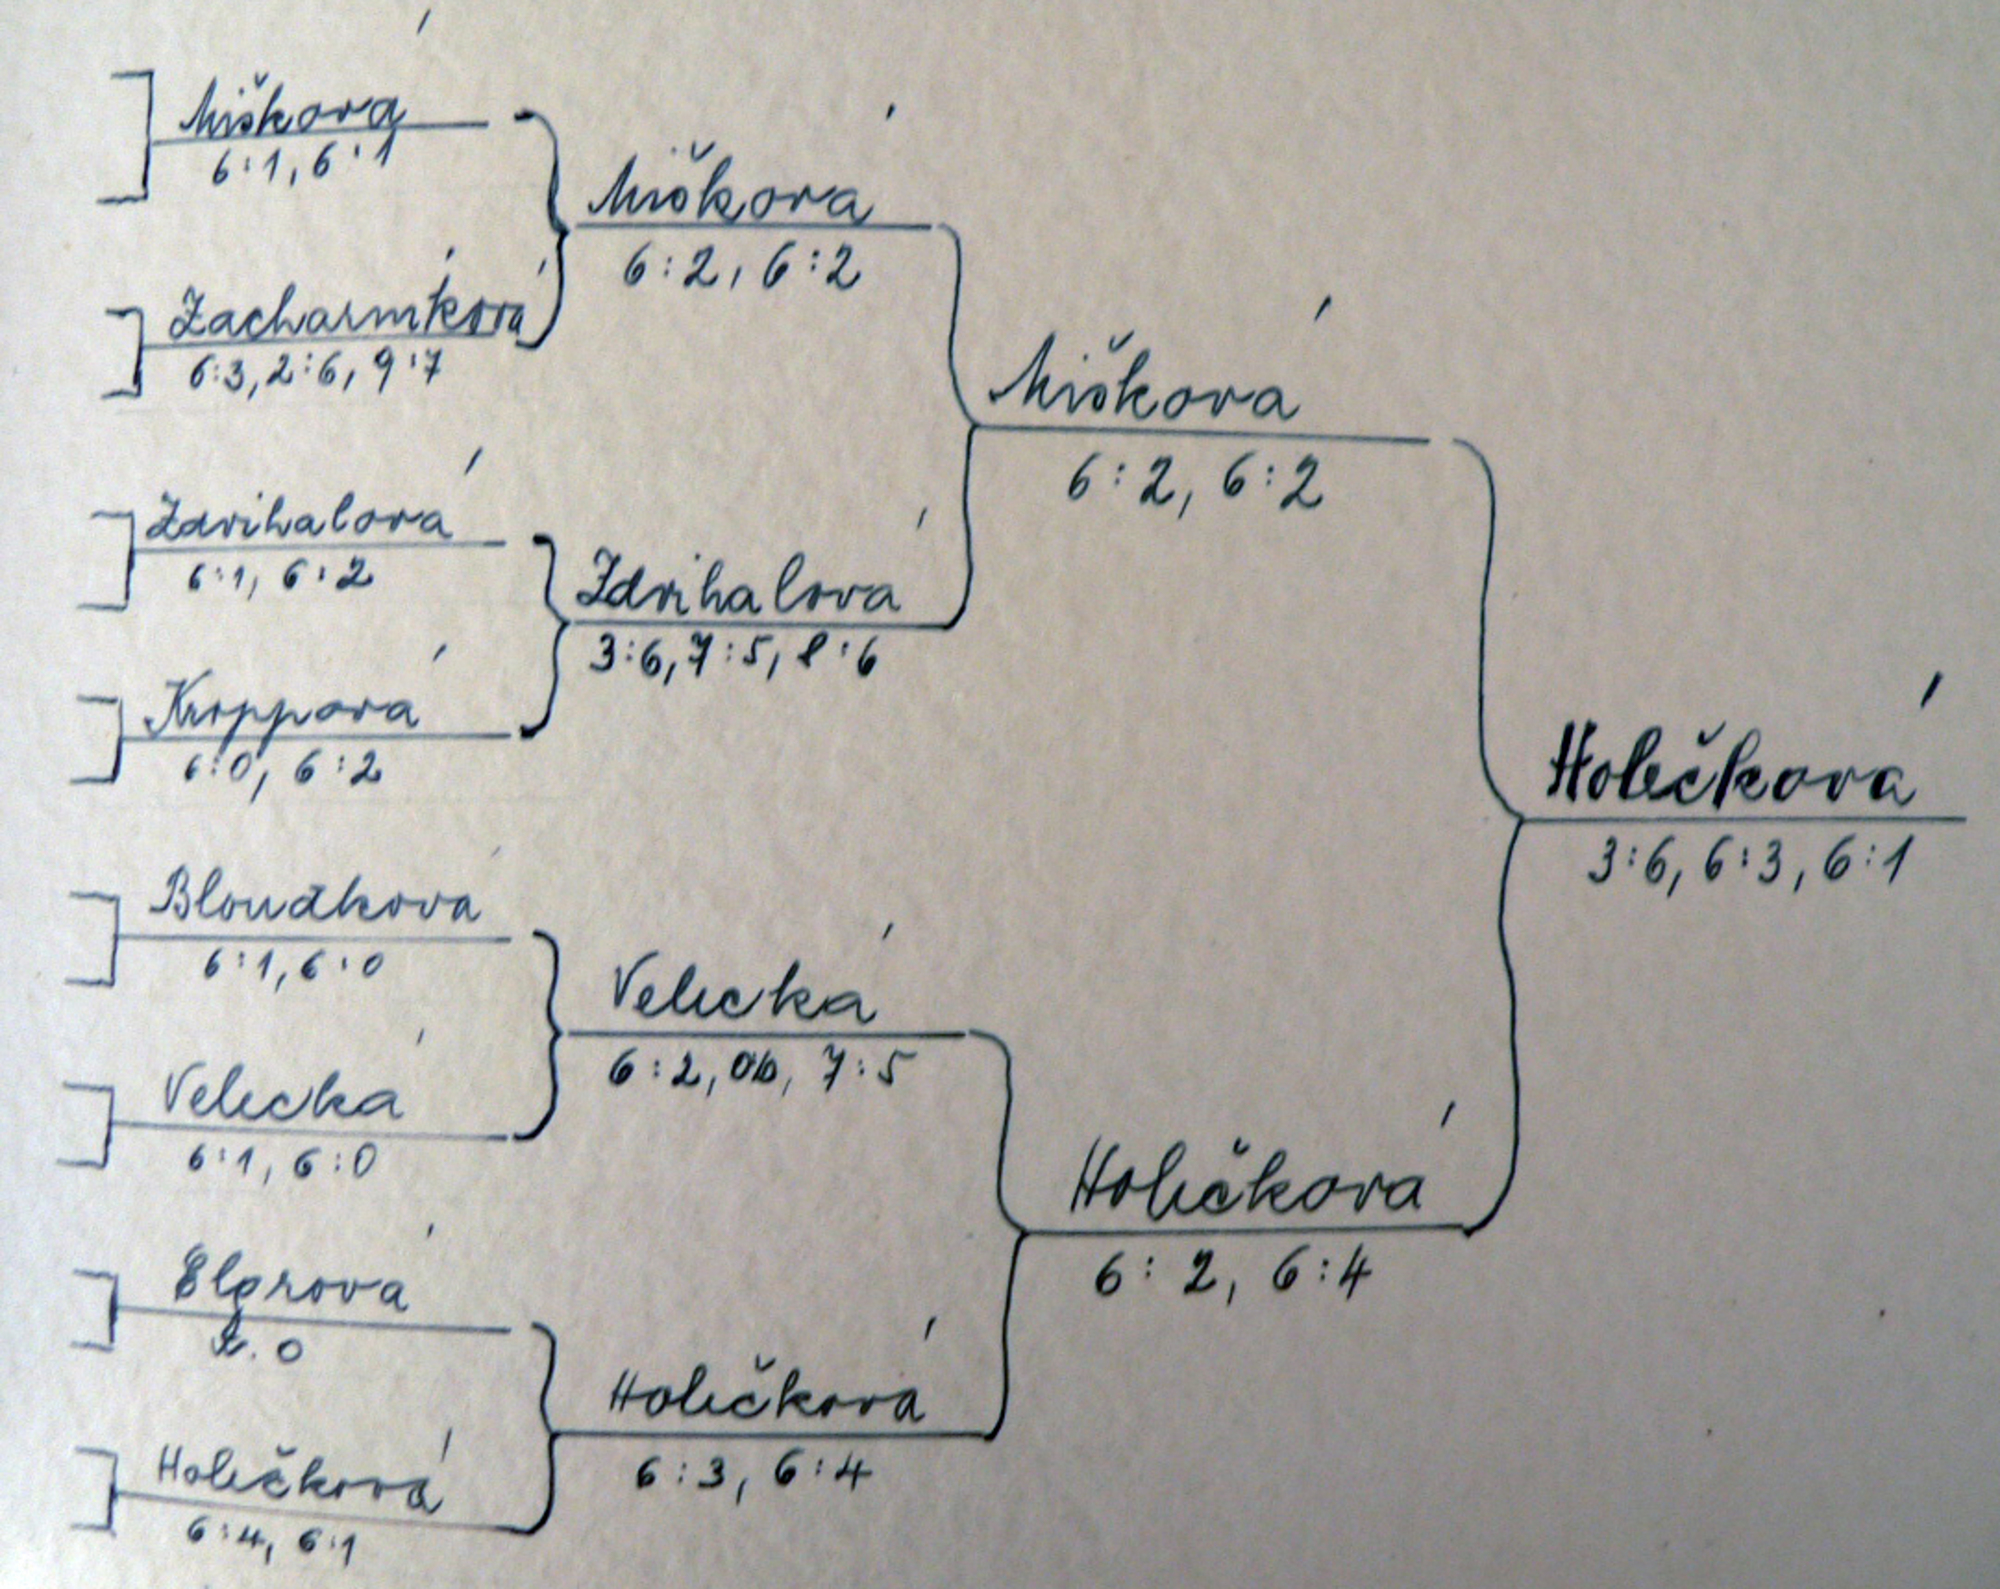 Mišková
6:1, 6:1
Zacharníková
6:3, 2:6, 9:7
Zdvihalová
6:1, 6:2
Kroppová
6:0, 6:2
Bloudková
6:1, 6:0
Velecká
6:1, 6:0
Elgrová
0
Holečková
6:4, 6:1
Mišková
6:2, 6:2
Zdvihalová
3:6, 7:5, 8:6
Velecká
6:2, 0:6, 7:5
Holečková
6:3, 6:4
Mišková
6:2, 6:2
Holečková
6:2, 6:4
Holečková
3:6, 6:3, 6:1